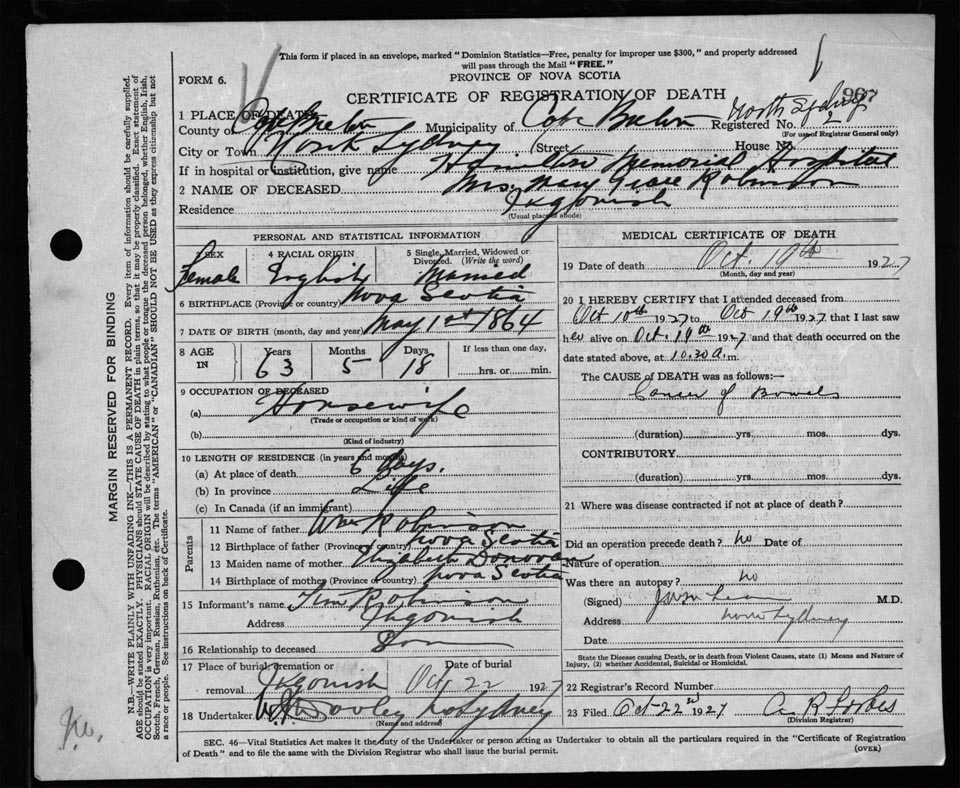 This form if placed in an envelope, marked "Dominion Statistics—Free, penalty for improper use $300," and properly addressed
will pass through the Mail "FREE."
FORM 6.
PROVINCE OF NOVA SCOTIA
CERTIFICATE OF REGISTRATION OF DEATH
North Sydney
1 PLACE OF DEATH
County of Cape Breton Municipality of Cape Breton Registered No. 2
(For use of Registrar General only)
City or Town North Sydney (Street House No.
If in hospital or institution, give name Hamilton Memorial Hospital
2 NAME OF DECEASED Mrs. Mary Grace Robinson
Residence Ingonish
(Usual place of abode)
PERSONAL AND STATISTICAL INFORMATION
3 SEX 4 RACIAL ORIGIN 5 Single, Married, Widowed or Divorced. (Write the word)
Female English Married
6 BIRTHPLACE (Province or country) Nova Scotia
7 DATE OF BIRTH (month, day and year) May 1st 1864
8 AGE IN Years Months Days If less than one day,
63 5 18 hrs. or min.
9 OCCUPATION OF DECEASED
(a) Housewife
(Trade or occupation or kind of work)
(b)
(Kind of industry)
10 LENGTH OF RESIDENCE (in years and months)
(a) At place of death 6 Days.
(b) In province Life
(c) In Canada (if an immigrant)
Parents
11 Name of father Wm Robinson
12 Birthplace of father (Province or country) Nova Scotia
13 Maiden name of mother Elizabeth Donovan
14 Birthplace of mother (Province or country) Nova Scotia
15 Informant's name Tim Robinson
Address Ingonish
16 Relationship to deceased Son
17 Place of burial, cremation or removal Ingonish
Date of burial Oct 22 1927
18 Undertaker Dooley N Sydney
(Name and address)
MEDICAL CERTIFICATE OF DEATH
19 Date of death Oct. 19th 1927
(Month, day and year)
20 I HEREBY CERTIFY that I attended deceased from
Oct 10th 1927 to Oct 19th 1927 that I last saw
her alive on Oct. 19th 1927 and that death occurred on the
date stated above, at 10.30 a.m.
The CAUSE of DEATH was as follows:—
Cancer of Bowels
(duration) yrs. mos. dys.
CONTRIBUTORY
(duration) yrs. mos. dys.
21 Where was disease contracted if not at place of death?
Did an operation precede death? No Date of
Nature of operation
Was there an autopsy? no
(Signed) M.D.
Address North Sydney
Date
State the Disease causing Death, or in death from Violent Causes, state (1) Means and Nature of
Injury, (2) whether Accidental, Suicidal or Homicidal.
22 Registrar's Record Number
23 Filed Oct 22nd 1927 A R Forbes
(Division Registrar)
SEC. 46—Vital Statistics Act makes it the duty of the Undertaker or person acting as Undertaker to obtain all the particulars required in the "Certificate of Registration
of Death" and to file the same with the Division Registrar who shall issue the burial permit.
(OVER)
MARGIN RESERVED FOR BINDING
N.B.—WRITE PLAINLY WITH UNFADING INK—THIS IS A PERMANENT RECORD. Every item of information should be carefully supplied.
AGE should be stated EXACTLY. PHYSICIANS should STATE CAUSE OF DEATH in plain terms, so that it may be properly classified. Exact statement of
OCCUPATION is very important. RACIAL ORIGIN will be described by stating to what people or tongue the deceased person belonged, whether English, Irish,
Scotch, French, German, Russian, Ruthenian, etc. The terms "AMERICAN" or "CANADIAN" SHOULD NOT BE USED as they express citizenship but not
a race or people. See instructions on back of Certificate.